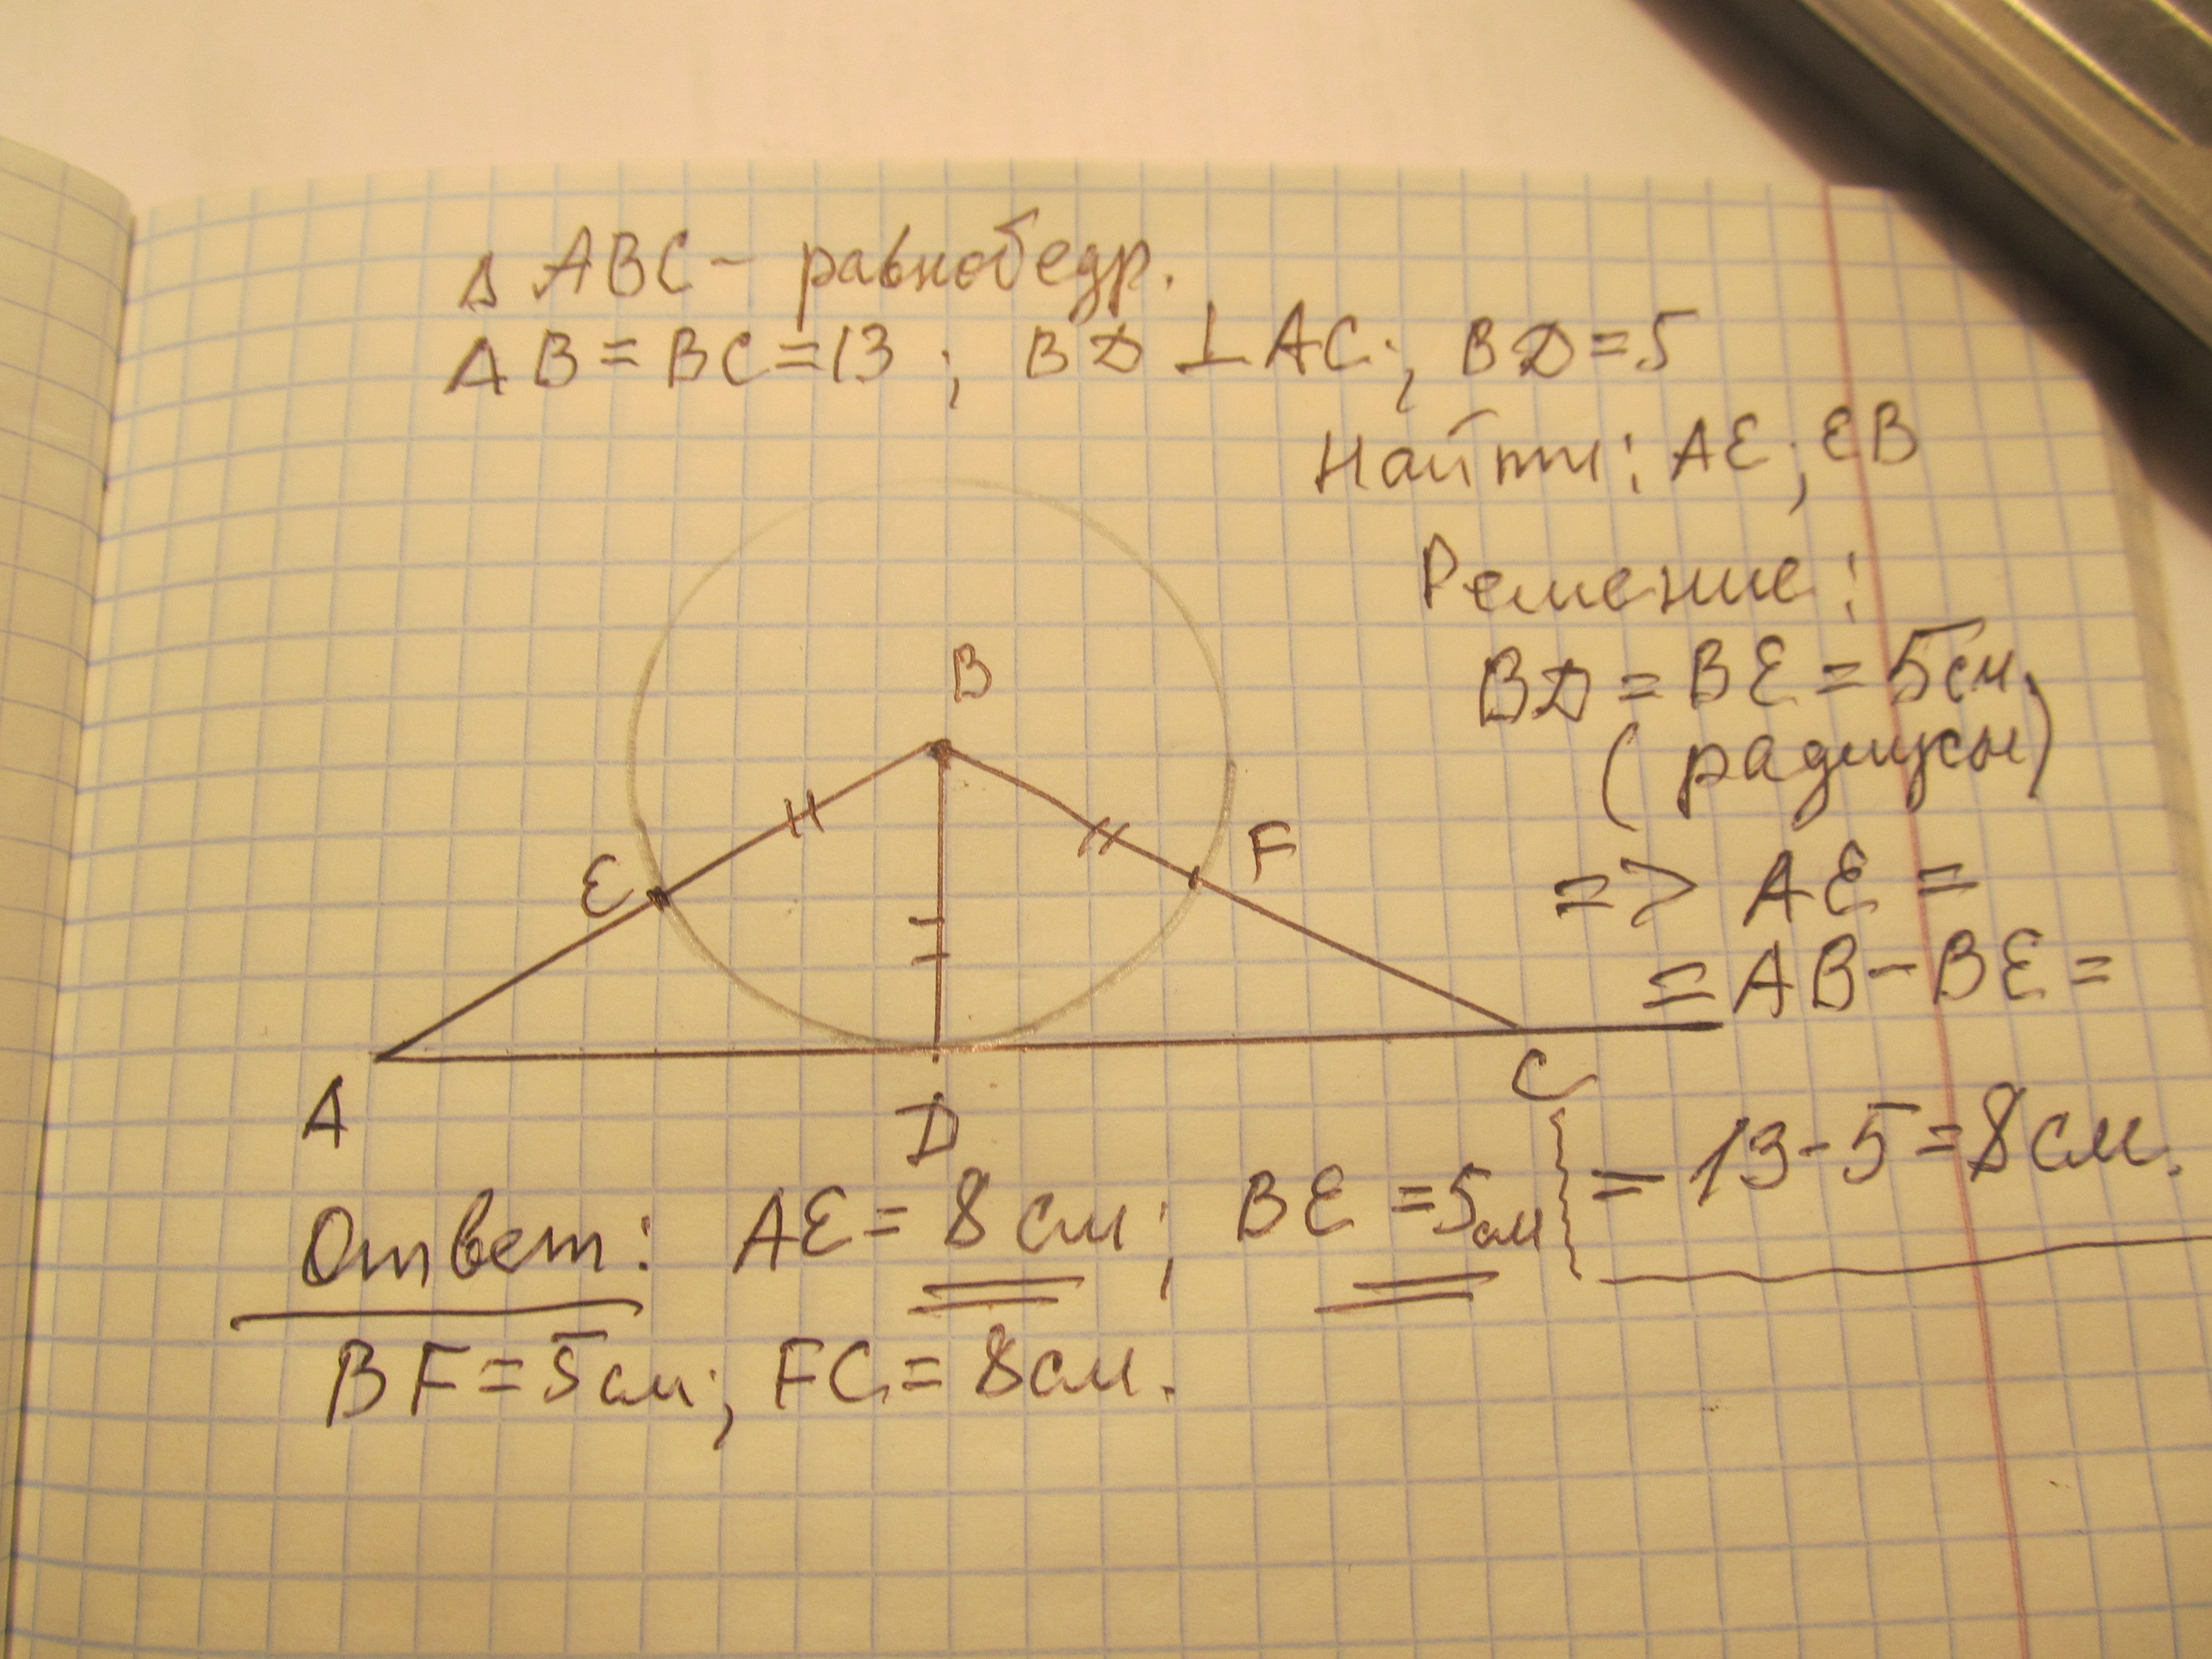 Δ ABC – равнобедр.
AB = BC = 13 ; BD ⊥ AC ; BD = 5
Найти: AE ; EB
Решение:
BD = BE = 5 см.
(радиусы)
=> AE =
= AB – BE =
= 13 - 5 = 8 см.
B
E
F
A
D
C
Ответ: AE = 8 см ; BE = 5 см
BF = 5 см ; FC = 8 см.